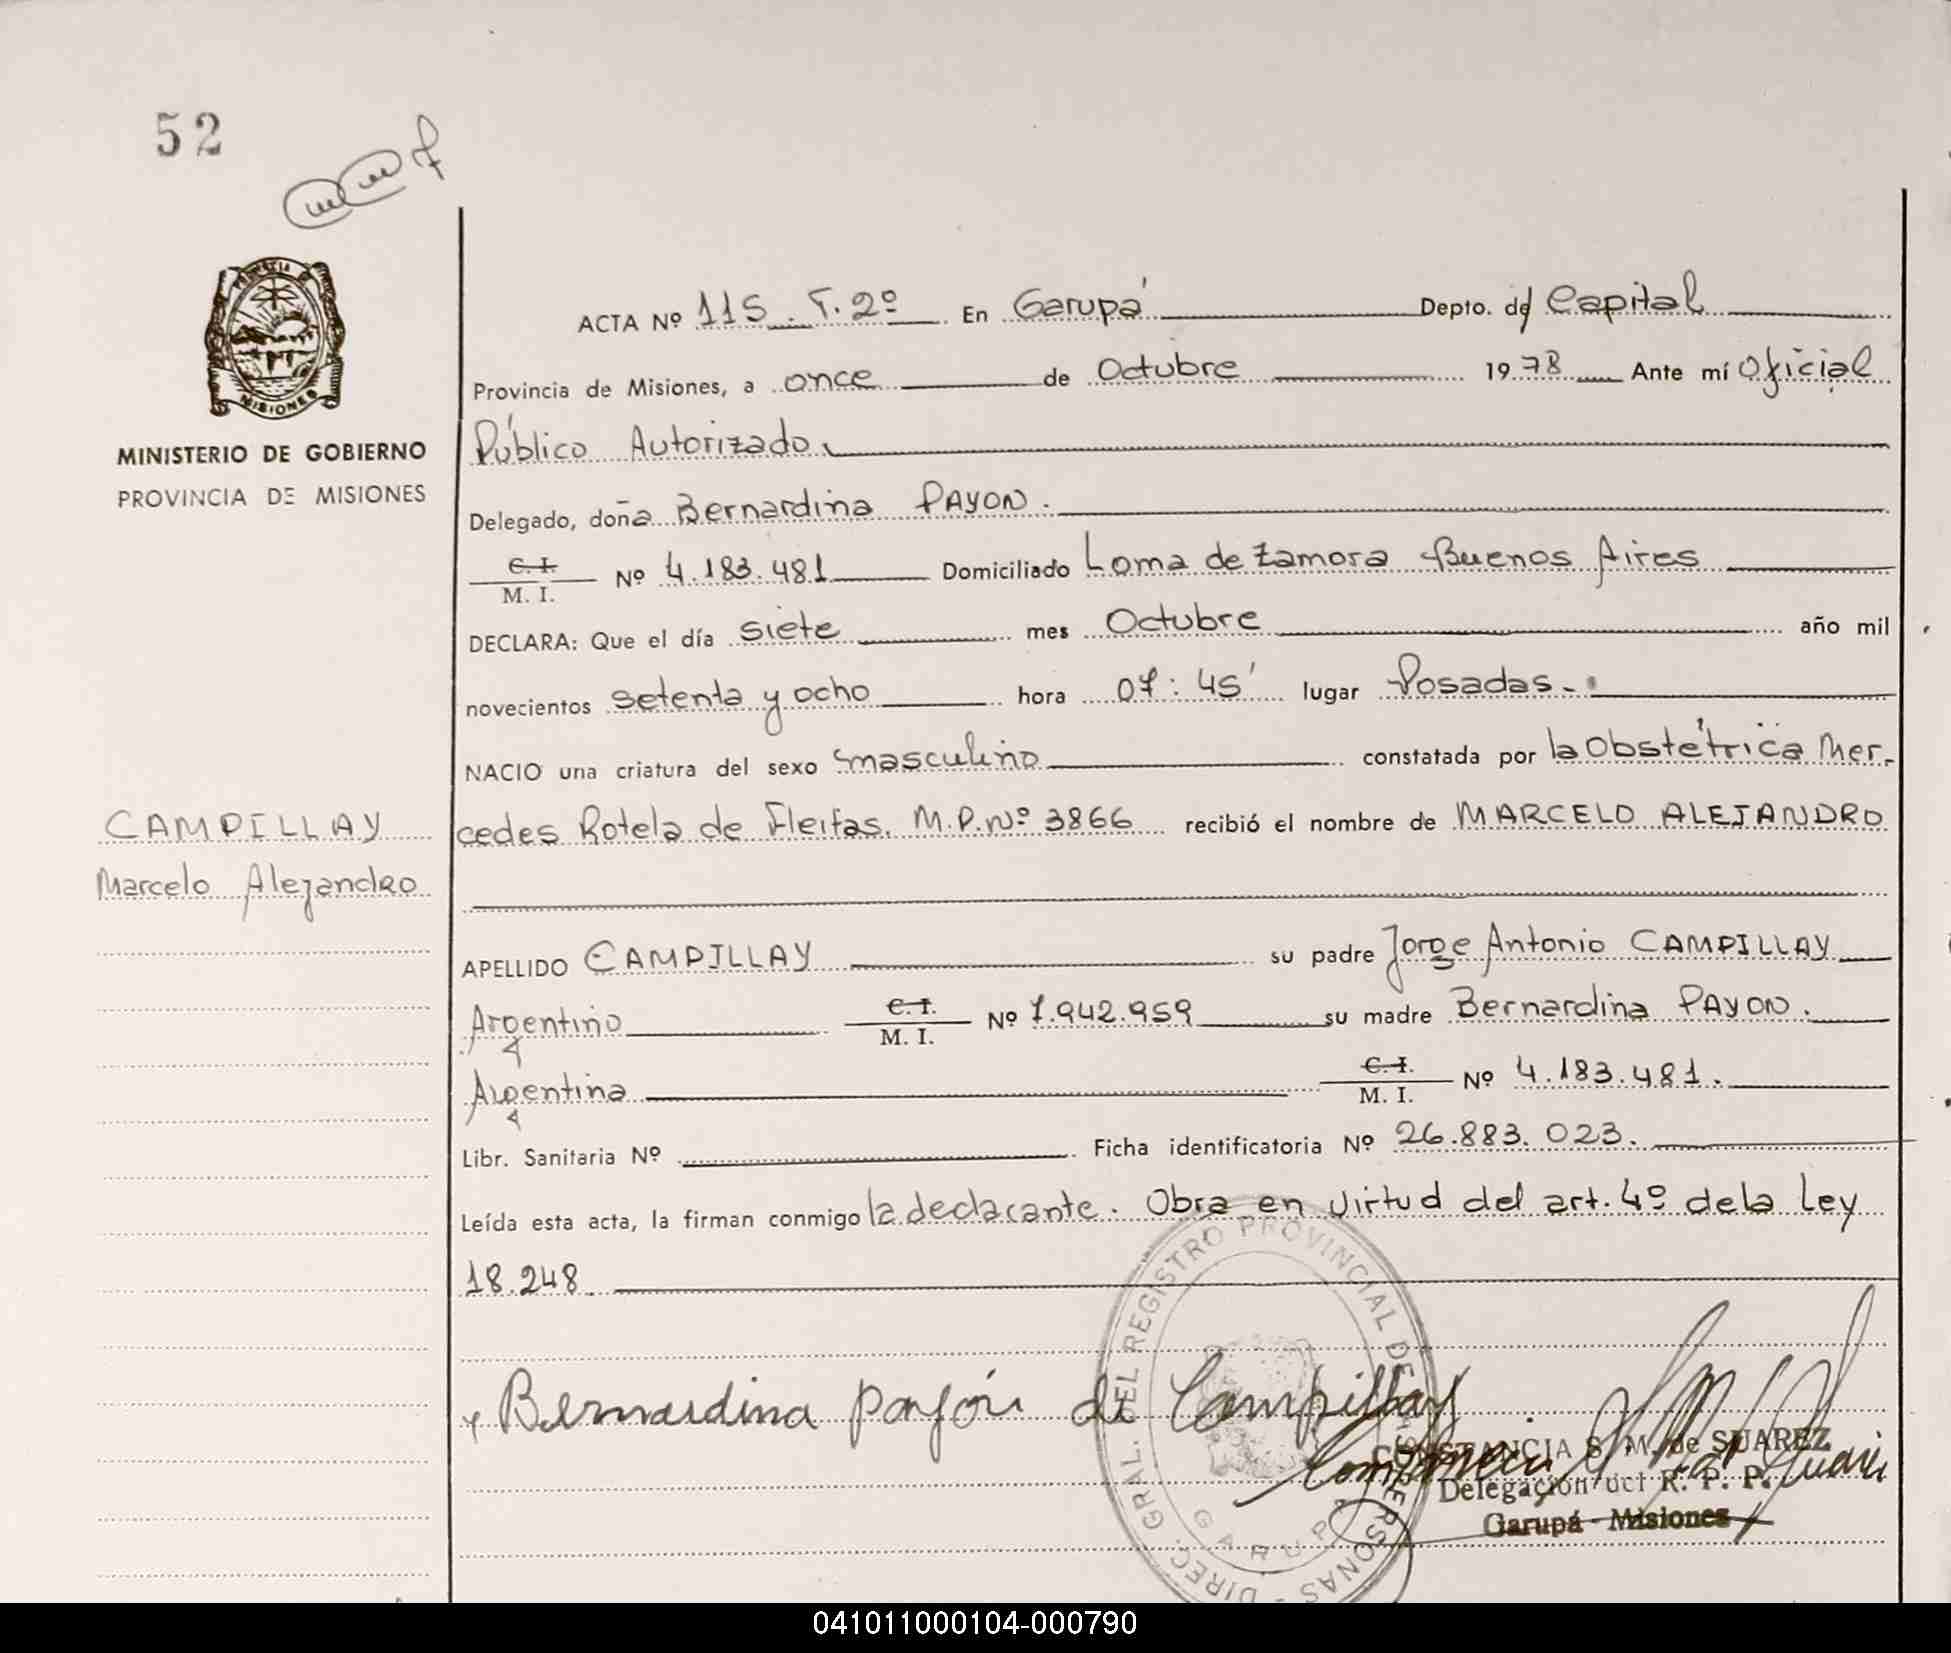 52
PROVINCIA
MISIONES
MINISTERIO DE GOBIERNO
PROVINCIA DE MISIONES
CAMPILLAY
Marcelo Alejandro
ACTA Nº 115. T. 2º En Garupá Depto. de Capital
Provincia de Misiones, a once de Octubre 1978 Ante mí Oficial
Público Autorizado.
Delegado, doña Bernardina PAYON.
C. I.
M. I. Nº 4.183.481 Domiciliado Loma de Zamora Buenos Aires
DECLARA: Que el día siete mes Octubre año mil
novecientos setenta y ocho hora 07:45' lugar Posadas.
NACIO una criatura del sexo masculino constatada por la Obstétrica Mer-
cedes Rotela de Fleitas. M.P.Nº 3866 recibió el nombre de MARCELO ALEJANDRO
APELLIDO CAMPILLAY su padre Jorge Antonio CAMPILLAY
Argentino C. I. M. I. Nº 7.942.959 su madre Bernardina PAYON.
Argentina C. I. M. I. Nº 4.183.481.
Libr. Sanitaria Nº Ficha identificatoria Nº 26.883.023.
Leída esta acta, la firman conmigo la declarante. Obra en virtud del art. 4º de la Ley
18.248
Bernardina payón de Campillay
DIREC. GRAL. DEL REGISTRO PROVINCIAL DE LAS PERSONAS
GARUPA
CONSTANCIA S. M. de SUAREZ
Delegación del R. P. P.
Garupá - Misiones
041011000104-000790